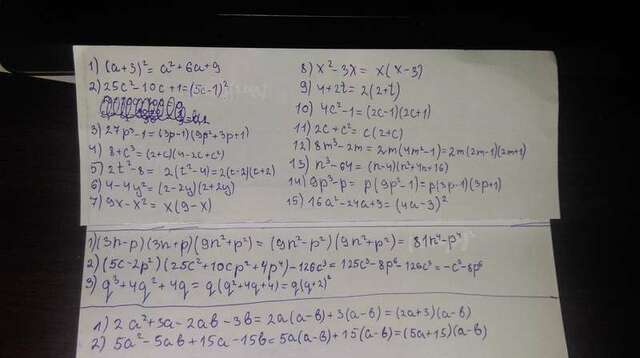 1) (a+3)² = a²+6a+9
2) 25c²-10c+1=(5c-1)²
3) 27p³-1=(3p-1)(9p²+3p+1)
4) 8+c³=(2+c)(4-2c+c²)
5) 2t²-8= 2(t²-4)=2(t-2)(t+2)
6) 4-4y²= (2-2y)(2+2y)
7) 9x-x²= x(9-x)
8) x²-3x= x(x-3)
9) 4+2t= 2(2+t)
10) 4c²-1=(2c-1)(2c+1)
11) 2c+c²= c(2+c)
12) 8m³-2m= 2m(4m²-1)=2m(2m-1)(2m+1)
13) n³-64=(n-4)(n²+4n+16)
14) 9p³-p= p(9p²-1)=p(3p-1)(3p+1)
15) 16a²-24a+9=(4a-3)²
1) (3n-p)(3n+p)(9n²+p²)=(9n²-p²)(9n²+p²)= 81n⁴-p⁴
2) (5c-2p²)(25c²+10cp²+4p⁴)-126c³=125c³-8p⁶-126c³=-c³-8p⁶
3) q³+4q²+4q= q(q²+4q+4)=q(q+2)²
1) 2a²+3a-2ab-3b=2a(a-b)+3(a-b)=(2a+3)(a-b)
2) 5a²-5ab+15a-15b=5a(a-b)+15(a-b)=(5a+15)(a-b)